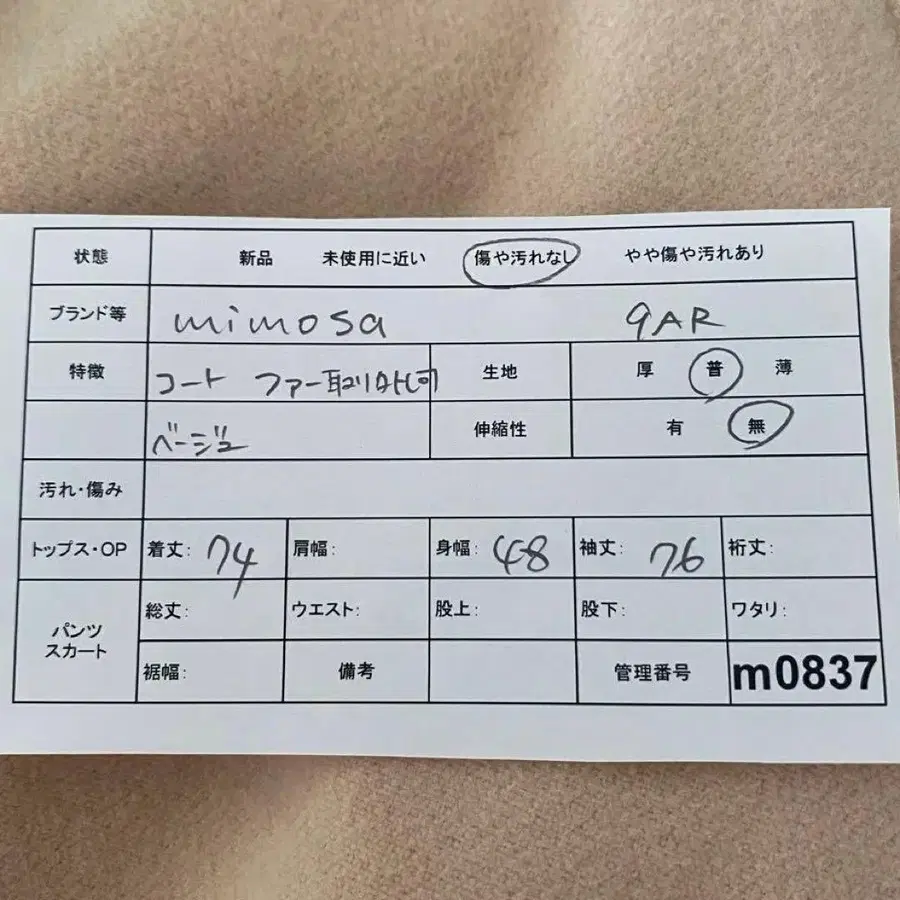 状態 新品 未使用に近い 傷や汚れなし やや傷や汚れあり
ブランド等 mimosa 9AR
特徴 コート ファー取り外し可 生地 厚 普 薄
ベージュ 伸縮性 有 無
汚れ・傷み
トップス・OP 着丈: 74 肩幅: 身幅: 48 袖丈: 76 裄丈:
パンツ スカート 総丈: ウエスト: 股上: 股下: ワタリ:
裾幅: 備考 管理番号 m0837